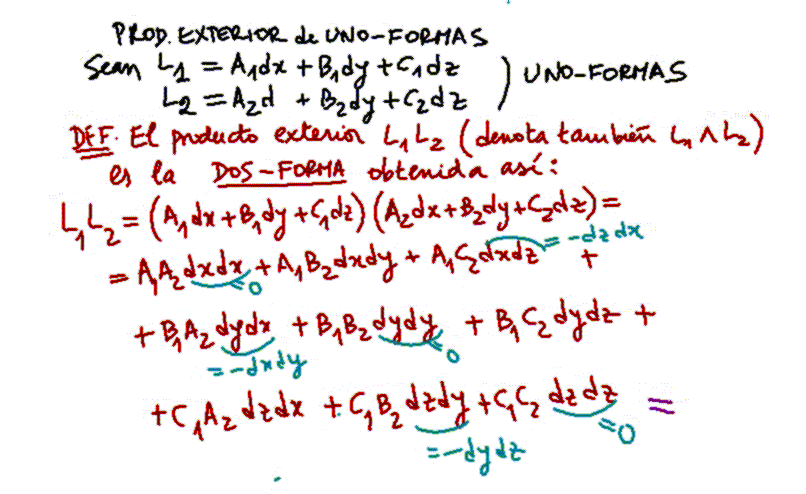 PROD. EXTERIOR de UNO-FORMAS
Sean L₁ = A₁dx + B₁dy + C₁dz ) UNO-FORMAS
L₂ = A₂d + B₂dy + C₂dz
DEF. El producto exterior L₁L₂ (denota también L₁ ∧ L₂)
es la DOS-FORMA obtenida así:
L₁L₂ = (A₁dx + B₁dy + C₁dz) (A₂dx + B₂dy + C₂dz) =
= A₁A₂ dxdx + A₁B₂ dxdy + A₁C₂ dxdz = -dzdx +
= 0
+ B₁A₂ dydx + B₁B₂ dydy + B₁C₂ dydz +
= -dxdy = 0
+ C₁A₂ dzdx + C₁B₂ dzdy + C₁C₂ dzdz =
= -dydz = 0